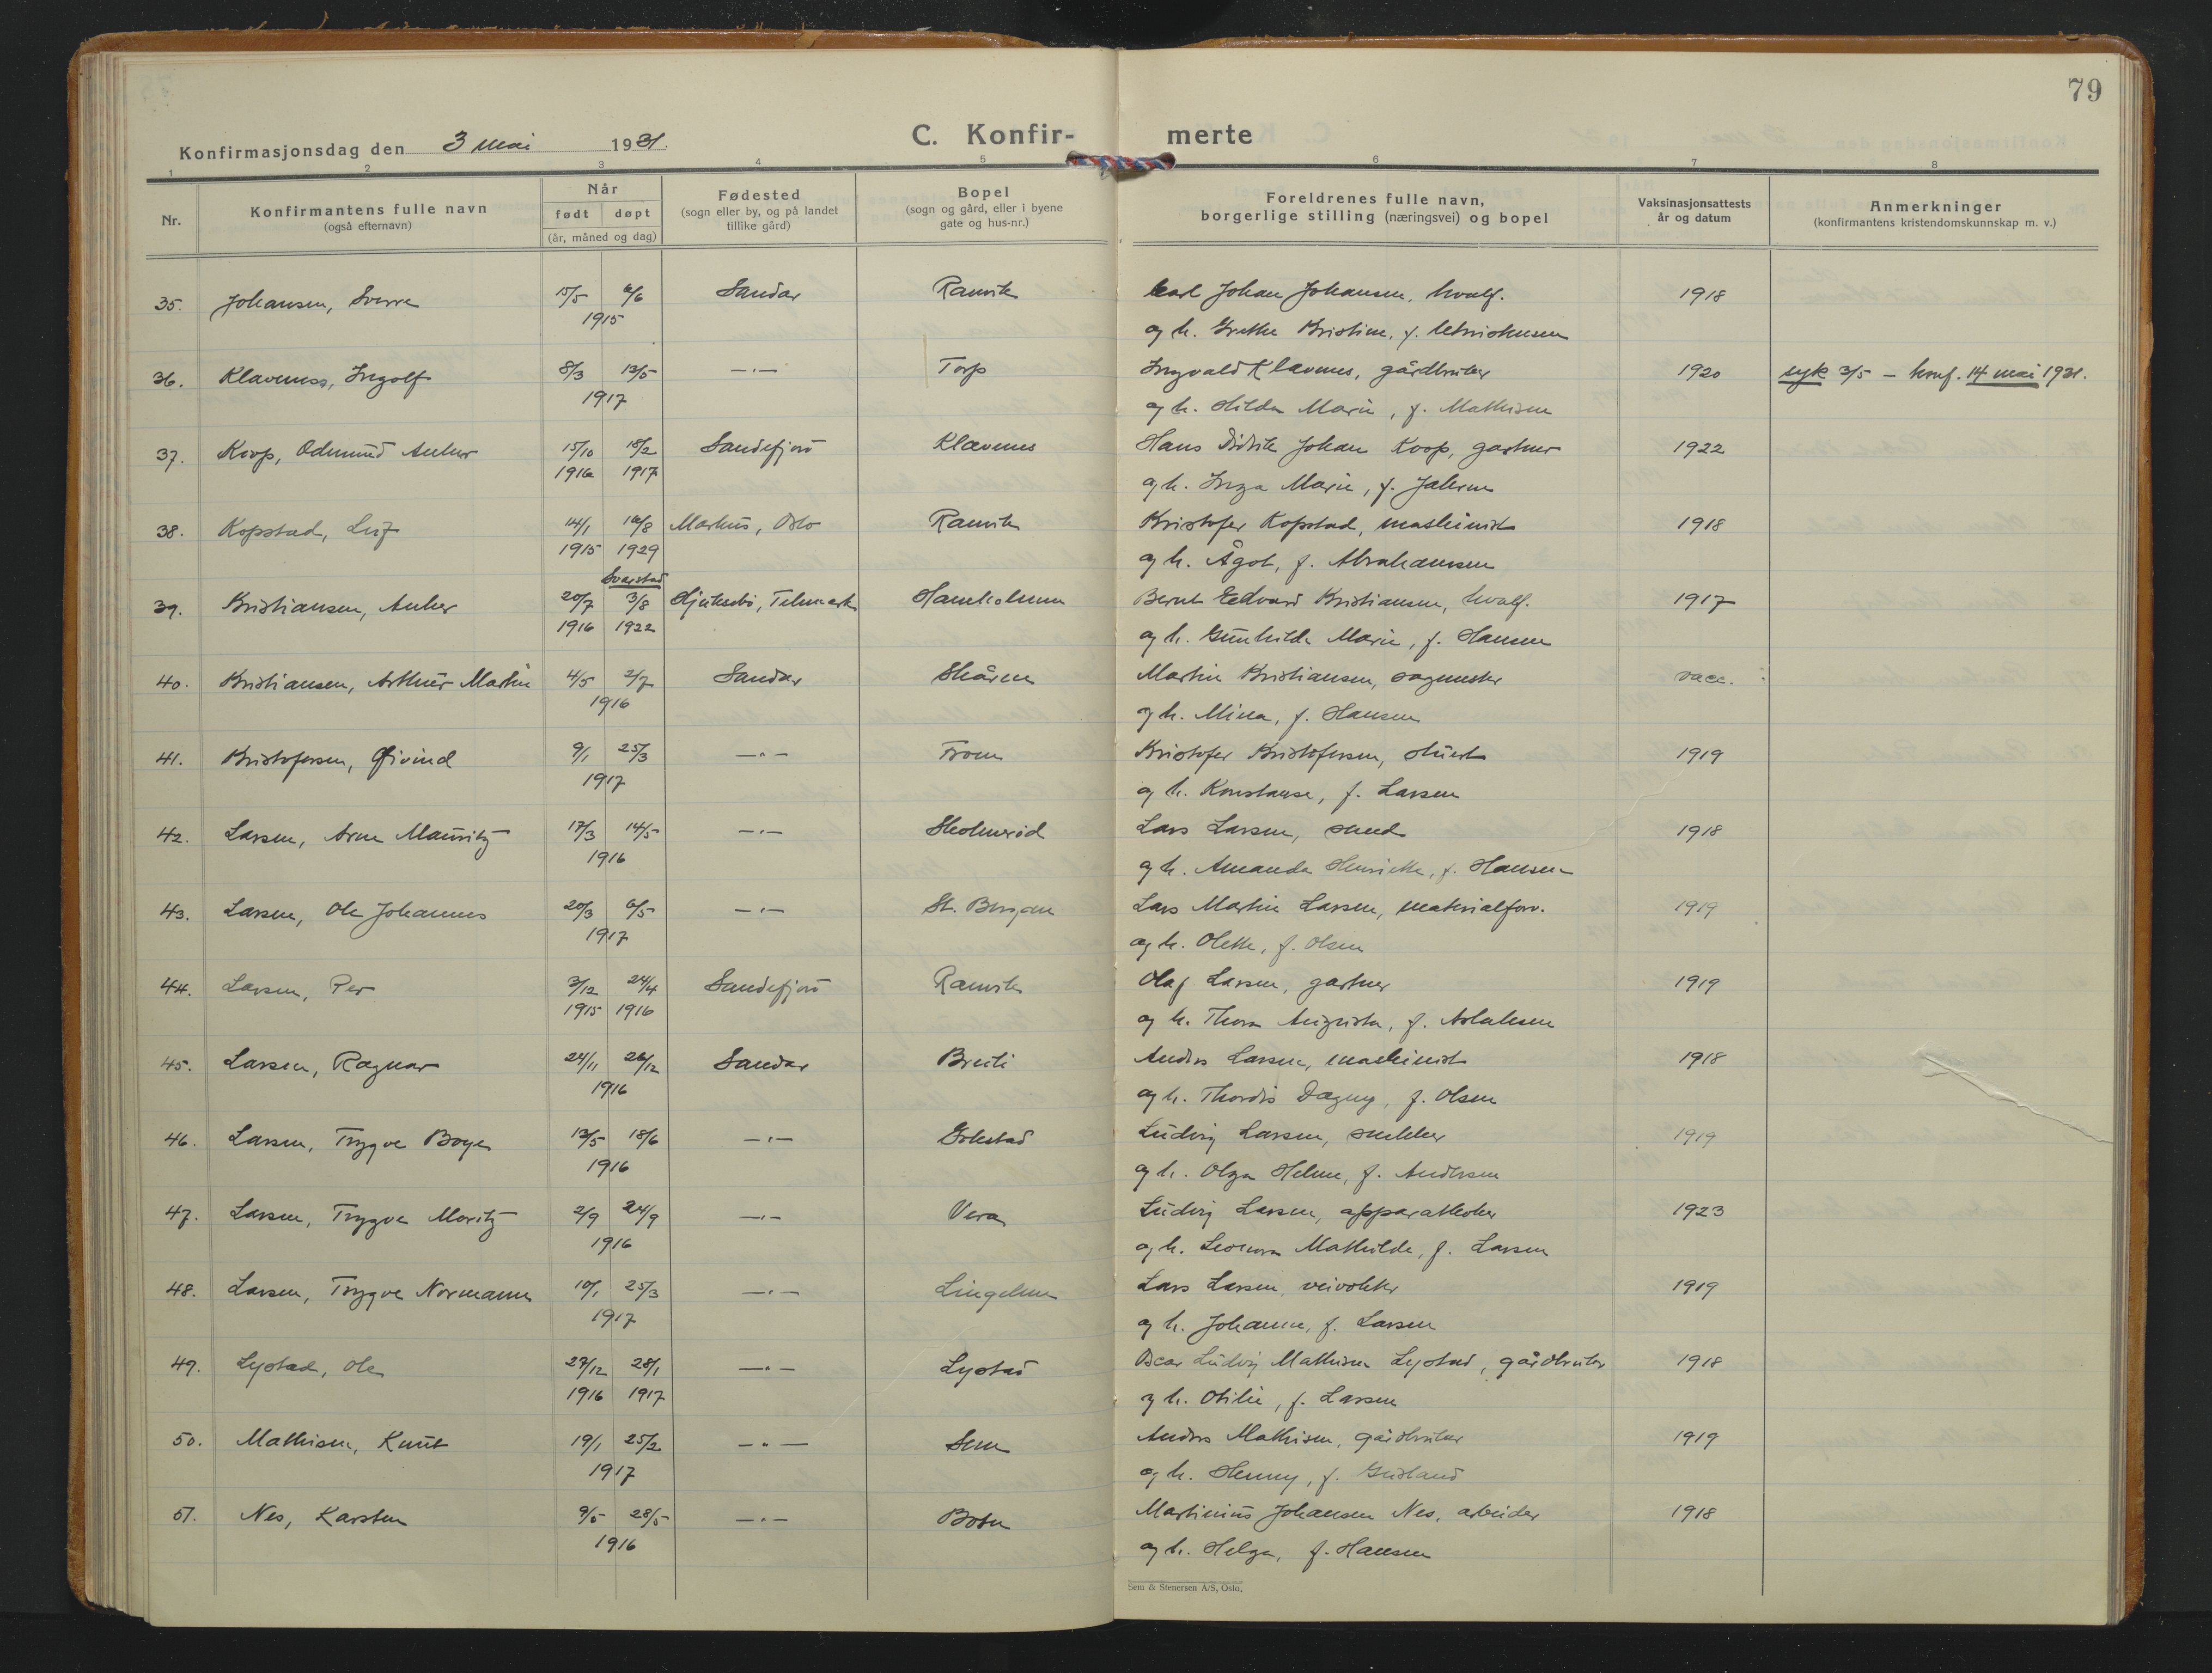 79
Konfirmasjonsdag den 3 mai 1931.
C. Konfir- merte
1 2 3 4 5 6 7 8
Nr.
Konfirmantens fulle navn
(også efternavn)
Når
født døpt
(år, måned og dag)
Fødested
(sogn eller by, og på landet
tillike gård)
Bopel
(sogn og gård, eller i byene
gate og hus-nr.)
Foreldrenes fulle navn,
borgerlige stilling (næringsvei) og bopel
Vaksinasjonsattests
år og datum
Anmerkninger
(konfirmantens kristendomskunnskap m. v.)
35. Johansen, Sverre 15/5 6/6 Sandar Ranvik Carl Johan Johansen, hvalf. 1918
1915 og h. Grethe Kristine, f. Christensen
36. Klaveness, Ingolf 8/3 13/5 —"— Torp Ingvald Klavenes, gårdbruker 1920 syk 3/5 – konf. 14 mai 1931.
1917 og h. Hilda Marie, f. Mathisen
37. Koop, Odmund Anker 15/10 18/2 Sandefjord Klavenes Hans Didrik Johan Koop, gartner 1922
1916 1917 og h. Inga Marie, f.
38. Kopstad, Leif 14/1 18/8 Markus, Oslo Ranvik Kristofer Kopstad, maskinist 1918
1915 1929 og h. Ågot, f. Abrahamsen
Svarstad
39. Kristiansen, Anker 20/7 3/8 Hjuksebø, Telemark Haneholmen Bernt Edvard Kristiansen, hvalf. 1917
1916 1922 og h. Gunhilda Marie, f. Hansen
40. Kristiansen, Arthur Martin 4/5 2/7 Sandar Skåren Martin Kristiansen, sagmester vacc.
1916 og h. Mina, f. Hansen
41. Kristofersen, Øivind 9/1 25/3 —"— From Kristofer Kristofersen, stuert 1919
1917 og h. Konstanse, f. Larsen
42. Larsen, Arne Mauritz 17/3 14/5 —"— Skolmerød Lars Larsen, smed 1918
1916 og h. Amanda Henriette, f. Hansen
43. Larsen, Ole Johannes 20/3 6/5 —"— St. Bergan Lars Martin Larsen, materialforv. 1919
1917 og h. Olette, f. Olsen
44. Larsen, Per 3/12 24/4 Sandefjord Ranvik Olaf Larsen, gartner 1919
1915 1916 og h. Thora Augusta, f. Aslaksen
45. Larsen, Ragnar 24/11 26/12 Sandar Breili Anders Larsen, maskinist 1918
1916 og h. Thordis Dagny, f. Olsen
46. Larsen, Trygve Boye 13/5 18/6 —"— Gokstad Ludvig Larsen, snekker 1919
1916 og h. Olga Helene, f. Andersen
47. Larsen, Trygve Moritz 2/9 24/9 —"— Vera Ludvig Larsen, apparatkoker 1923
1916 og h. Leonora Mathilde, f. Larsen
48. Larsen, Trygve Normann 10/1 25/3 —"— Lingelem Lars Larsen, veivokter 1919
1917 og h. Johanne, f. Larsen
49. Lystad, Ole 27/12 28/1 —"— Lystad Oscar Ludvig Mathisen Lystad, gårdbruker 1918
1916 1917 og h. Otilie, f. Larsen
50. Mathisen, Knut 19/1 25/2 —"— Sem Anders Mathisen, gårdbruker 1919
1917 og h. Henny, f.
51. Nes, Karsten 9/5 28/5 —"— Martinius Johansen Nes, arbeider 1918
1916 og h. Helga, f. Hansen
Sem & Stenersen A/S, Oslo.